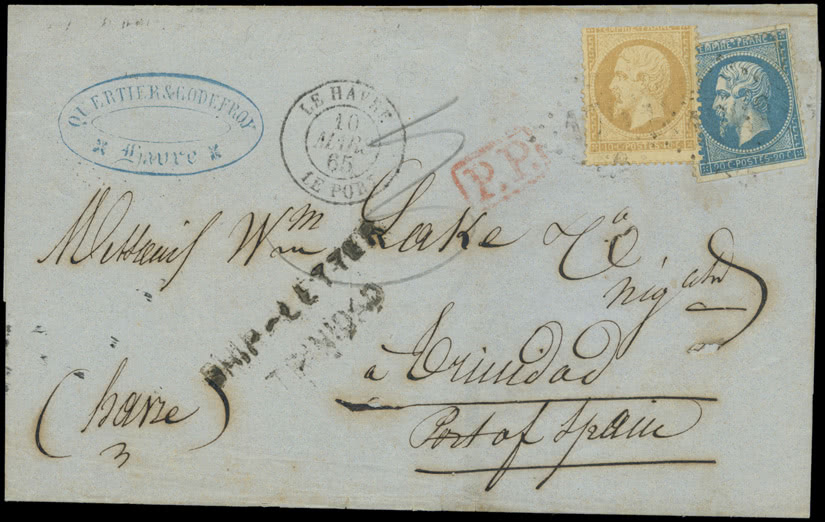 QUERTIER & GODEFROY
Havre
LE HAVRE
10
MARS
65
LE PORT
P.P.
EMPIRE FRANC
10 C POSTES 10 C
EMPIRE FRANC
20 C POSTES 20 C
Messieurs Wm Lake & Co
nigats
SHIP-LETTER
TRINIDAD
à Trinidad
Port of Spain
(havre)
3